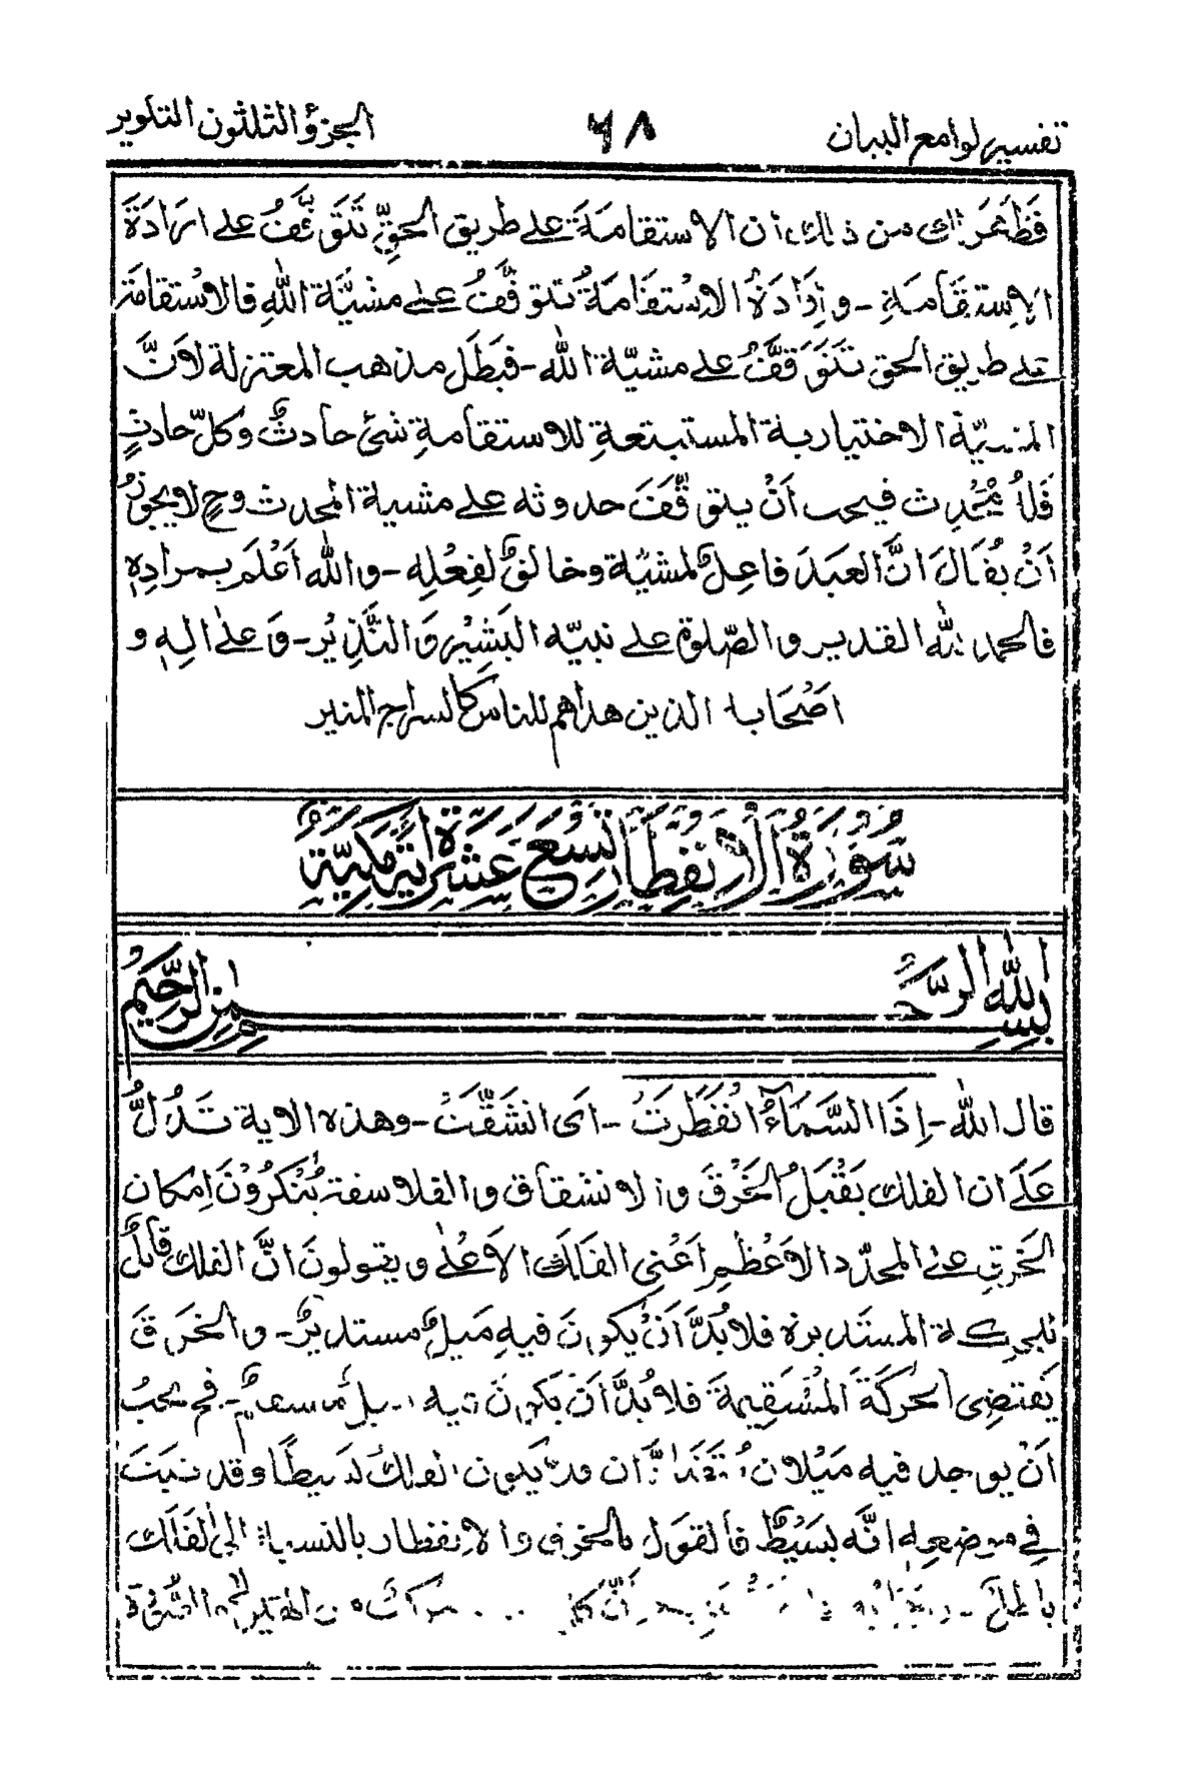 تفسير لوامع البيان ٦٨ الجزؤ الثلثون التكوير
فَظَهَرَ من ذلك ان الاستقامَةَ على طريق الحقِّ تَتَوَقَّفُ على ارَادَةَ
الاِستقَامةِ - و اِرَادَةُ الاِسْتقامةُ تتوقَّفُ على مشيَّة اللهِ فالاسْتقامَة
على طريق الحق تَتَوَقَّفُ على مشيّة الله - فبَطَل مذهب المعتزلة لاَنَّ
المشيّة الاختيارية المستتبعةِ للاستقامةِ شئ حادثٌ وكلّ حادثٍ
فلهُ مُحْدِث فيجب اَنْ يتوقّفَ حدوثه على مشية المحدث وحٍ لا يجوزُ
اَنْ يُقَالَ انَّ العَبدَ فاعِلٌ لمشيّة وخالقٌ لفِعْلِه - والله اَعْلَم بمرادِهٖ
فالحمد لله القدير والصّلوة على نبيّه البَشِيْر وَالنَّذِيْر - وَ عَلٰى الِهٖ و
اصْحَاب الذين هداهم للناس كالسراج المنير
سُوْرَةُ الْاِنفِطَارِ تِسْعَ عَشَرَةَ اٰيَةً مَكِيَّةٌ
بِسْمِ اللهِ الرَّحْمٰنِ الرَّحِيْمِ
قال الله - اِذَا السَّمَآءُ انْفَطَرَتْ - اى انشَقَّتْ - وهذه الاية تَدُلُّ
عَلَى ان الفلك يَقْبَلُ الخَرْقَ والانشقاق والفلاسفة يُنْكِرُوْنَ اِمكان
الخَرقِ على المحدّد الاَعْظَمِ اَعْنِى الفَلَكَ الاَعْلٰى ويقولونَ انَّ الفلك قابلٌ
للحركة المستديرة فلا بُدَّ اَنْ يكونَ فيهِ مَيلٌ مستديرٌ - والخَرقَ
يَقتضِى الحرَكَةَ المُسْتَقِيمَةَ فلا بُدَّ اَنْ يكونَ فيه ميلٌ مستقيمٌ - فح يجبُ
اَنْ يوجد فيه مَيْلانِ اَنَّ يكون الفلكُ بَسِيطًا وقد ثبَتَ
فِي موضعِهٖ انَّه بسَيْطٌ فالقول بالخرق والاِنفطار بالنسبة الى الفَلَك
باطلٌ